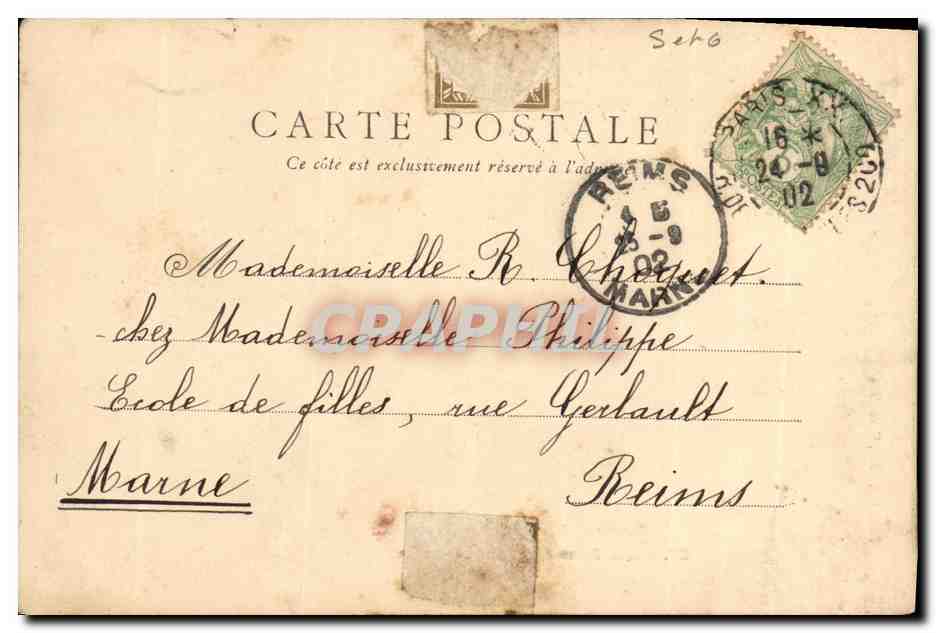 Set 6
CARTE POSTALE
Ce côte est exclusivement réservé à l'adr
PARIS XV
16 *
24 -9
02
REIMS
5
25 -9
02
MARNE
Mademoiselle R. Choquet.
chez Mademoiselle Philippe
Ecole de filles, rue Gerlault
Marne Reims
CRAPHIL